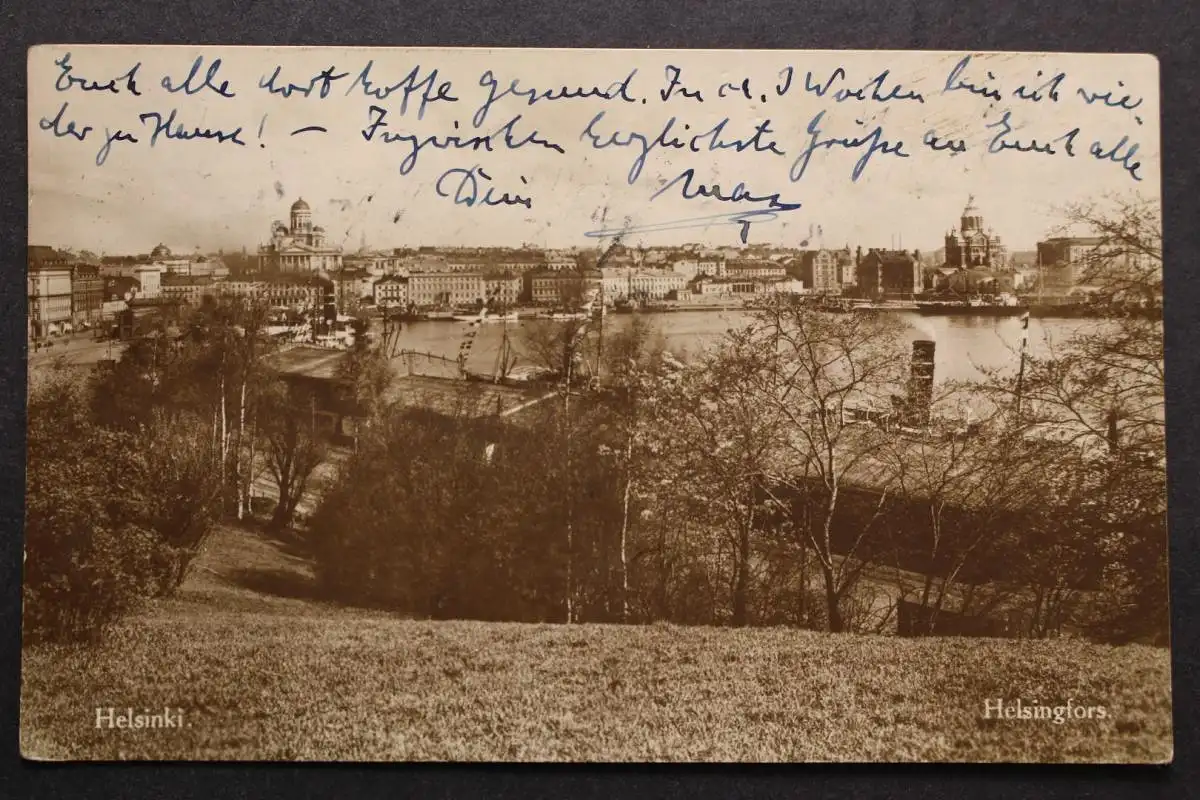 Euch alle dort hoffe gesund. In ca. 3 Wochen bin ich wie
der zu Hause! — Inzwischen herzlichste Grüße an Euch alle
Dein Max
Helsinki.
Helsingfors.